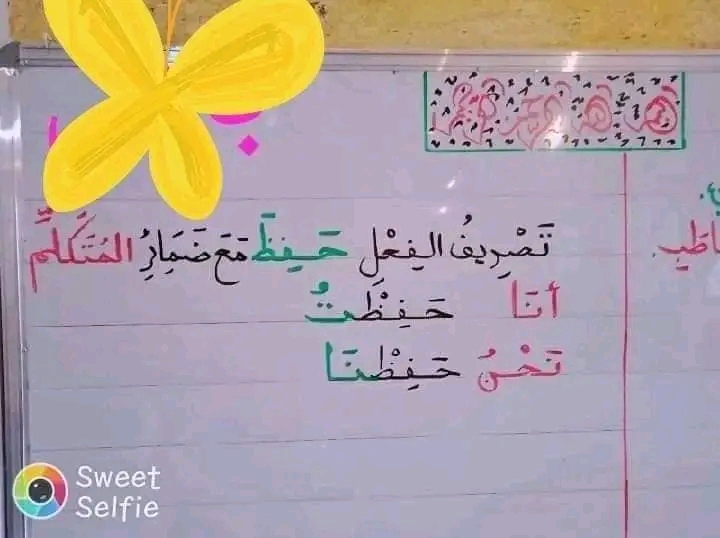 تَصْرِيفُ الفِعْلِ حَفِظَ مَعَ ضَمَائِرِ المُتَكَلِّمِ
أَنَا حَفِظْتُ
نَحْنُ حَفِظْنَا
Sweet
Selfie